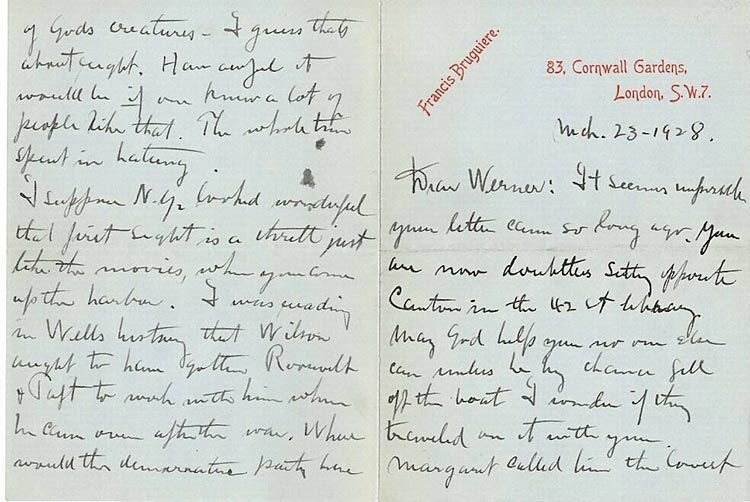 Francis Bruguiere.
83, Cornwall Gardens,
London, S.W.7.
Mch. 23-1928.
Dear Werner: It seems impossible
your letter came so long ago. You
are now doubtless sitting opposite
in the 42 St library
May God help you no one else
can unless he by chance fell
off the boat I wonder if they
traveled on it with you.
Margaret called him the lowest
of Gods creatures – I guess thats
about right. How awful it
would be if one knew a lot of
people like that. The whole time
spent in hating.
I suppose N.Y. looked wonderful
that first sight is a thrill just
like the movies, when you come
up the harbor. I was reading
in Wells history that Wilson
ought to have gotten Roosevelt
& Taft to work with him when
he came over after the war. Where
would the democratic party have